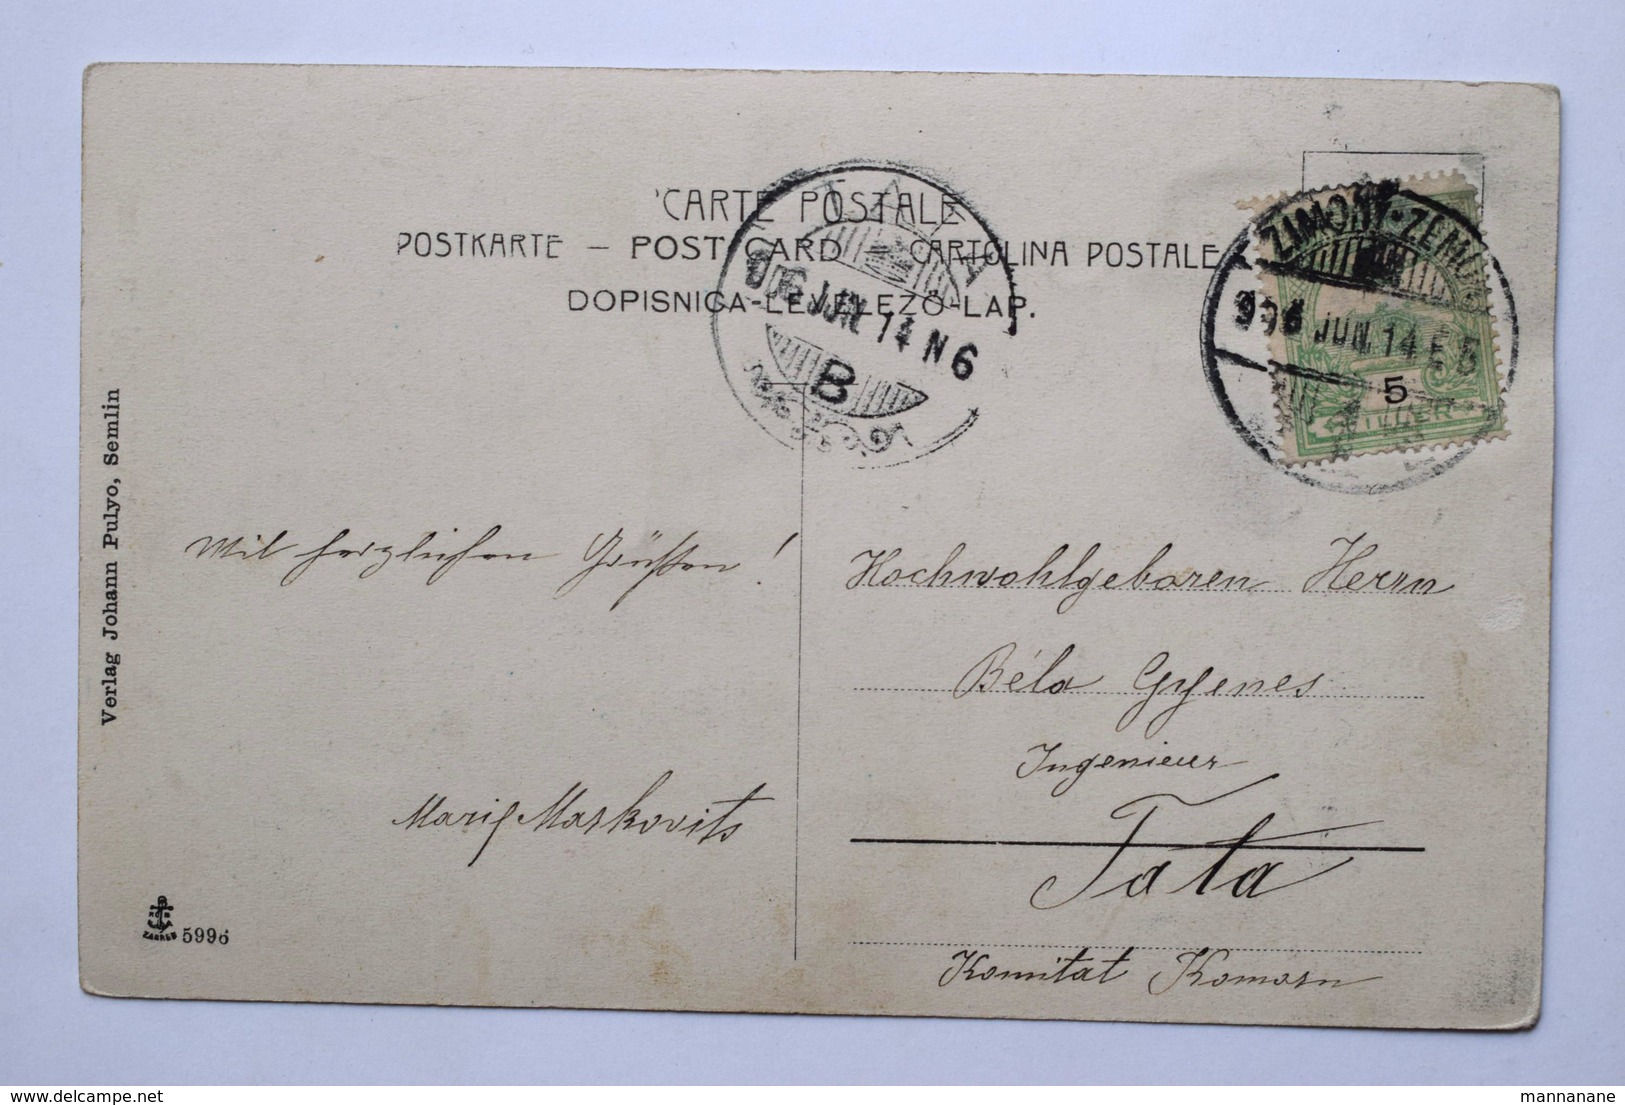 CARTE POSTALE
POSTKARTE – POST CARD – CARTOLINA POSTALE
DOPISNICA-LEVELEZŐ-LAP.
TATA
906 JUN. 14 N 6
B
ZIMONY·ZEMUN
906 JUN. 14 E 5
5
Verlag Johann Pulyo, Semlin
Mit herzlichen Grüßen!
Markovits
Hochwohlgeboren Herrn
Béla Gyenes
Ingenieur
Tata
Komitat Komorn
ZAGREB
5996
www.delcampe.net
mannanane